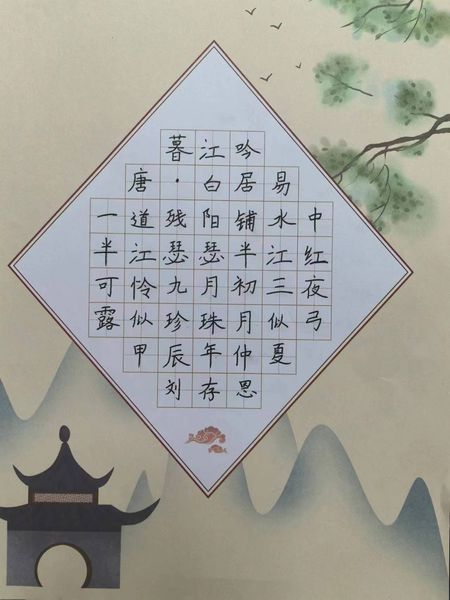 暮江吟
唐·白居易
一道残阳铺水中
半江瑟瑟半江红
可怜九月初三夜
露似珍珠月似弓
甲辰年仲夏
刘存恩